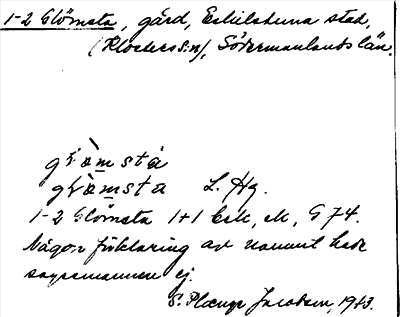 1-2 Glömsta, gård, Eskilstuna stad,
(Klosters s:n), Södermanlands län.
grö̀msta
grö̀msta L. Hg.
1-2 Glömsta 1+1 Esk, M, G 74.
Någon förklaring av namnet hade
sagesmannen ej.
S. Jacobson, 1943.